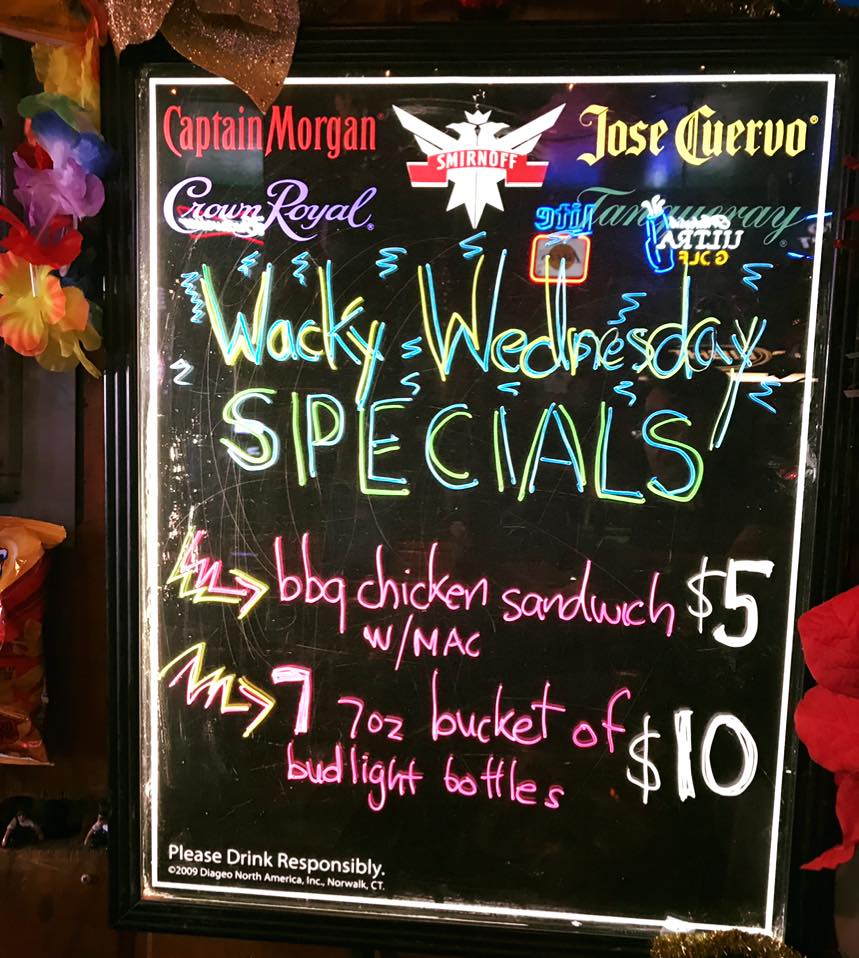 Captain Morgan®
SMIRNOFF
Jose Cuervo®
Crown Royal®
Tanqueray®
ULTRA
GOLF
Wacky Wednesday
SPECIALS
bbq chicken sandwich $5
W/MAC
7 7oz bucket of $10
bud light bottles
Please Drink Responsibly.
©2009 Diageo North America, Inc., Norwalk, CT.